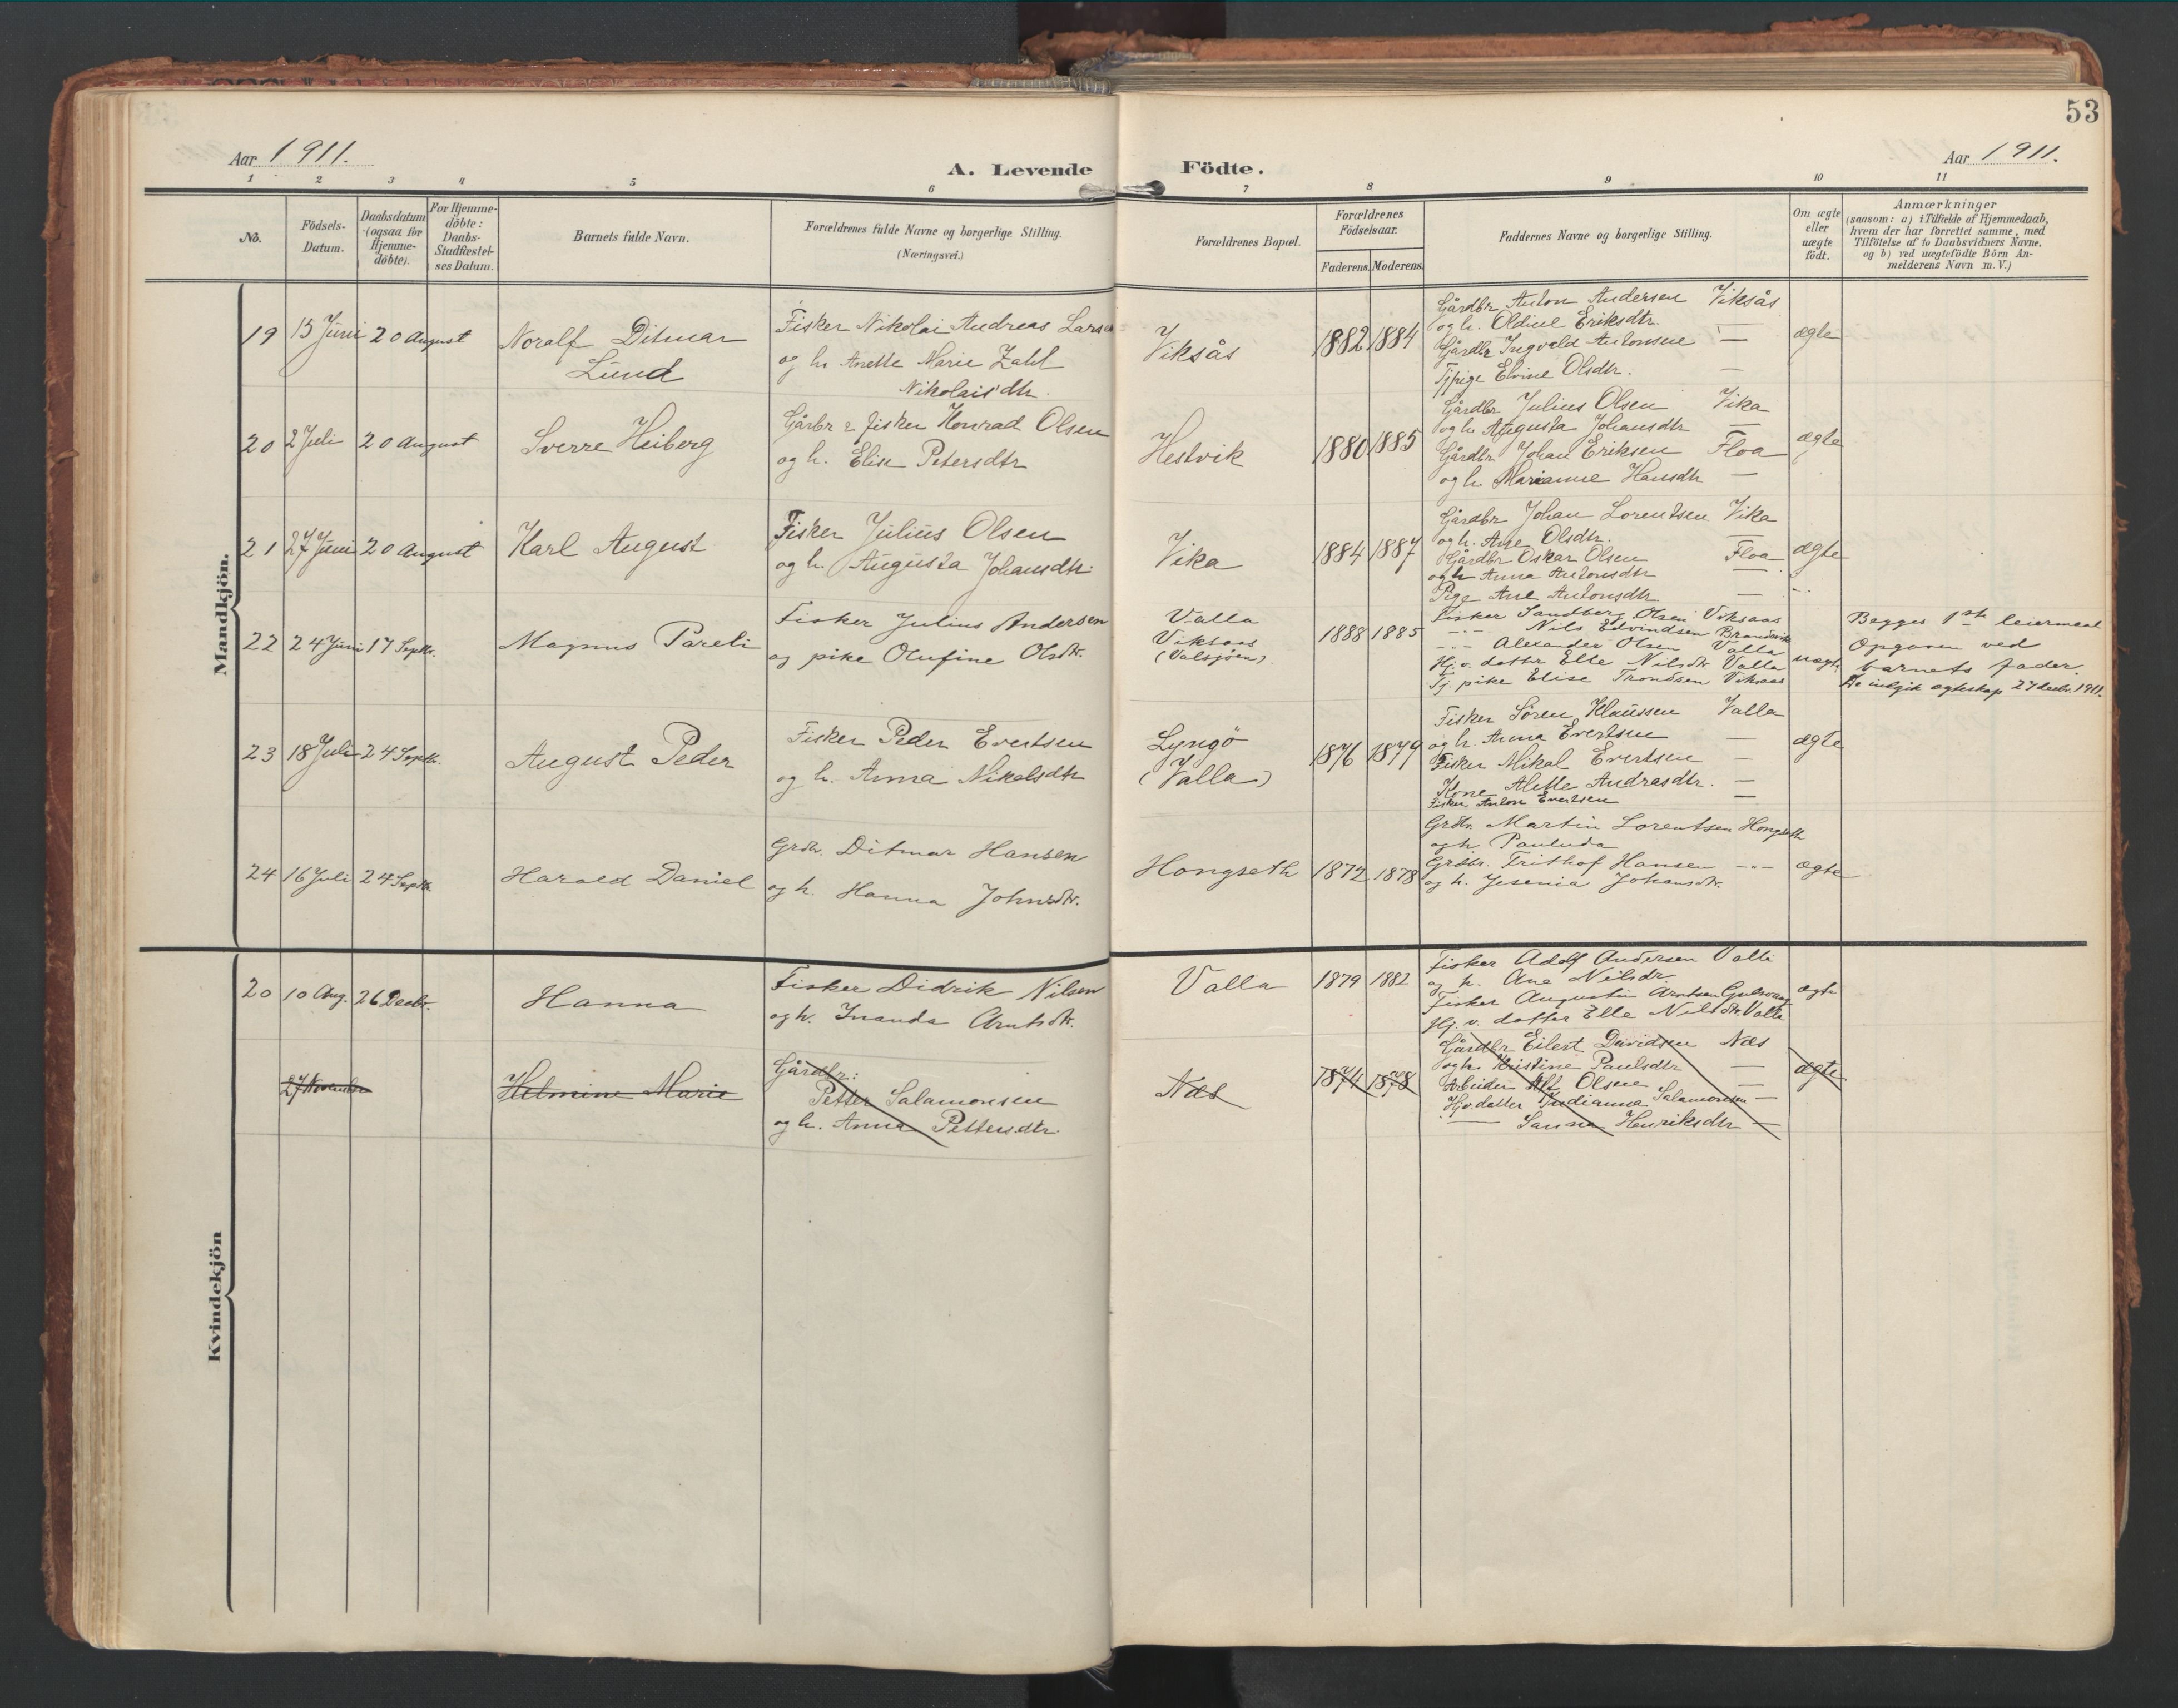 53
Aar 1911.
A. Levende Födte.
Aar 1911.
1 2 3 4 5 6 7 8 9 10 11
No.
Födsels-Datum.
Daabsdatum (ogsaa for Hjemme-döbte).
For Hjemme-döbte: Daabs-Stadfæstel-ses Datum.
Barnets fulde Navn.
Forældrenes fulde Navne og borgerlige Stilling.
(Næringsvei.)
Forældrenes Bopæl.
Forældrenes Födselsaar.
Faderens. Moderens.
Faddernes Navne og borgerlige Stilling.
Om ægte eller uægte födt.
Anmærkninger
(saasom: a) i Tilfælde af Hjemmedaab,
hvem der har forrettet samme, med
Tilföielse af to Daabsvidners Navne.
og b) ved uægtefödte Börn An-
melderens Navn m. V.)
Mandkjön.
19 15 Juni 20 August
Noralf Ditmar
Lund
Fisker Nikolai Andreas Larsen
og h. Anette Marie Zahl
Nikolaisdtr.
Viksås
1882 1884
Gårdbr Anton Andersen Viksås
og h. Oldine Eriksdtr. —
Gårdbr Ingvald Antonsen —
Tjpige Elvine Olsdtr. —
ægte
20 2 Juli 20 August
Sverre Heiberg
Gårbr & fisker Konrad Olsen
og h. Elise Petersdtr
Hestvik
1880 1885
Gårdbr Julius Olsen Vika
og h. Augusta Johansdtr —
Gårdbr Johan Eriksen Floa
og h. Marianne Hansdtr —
ægte
21 27 Juni 20 August
Karl August
Fisker Julius Olsen
og h. Augusta Johansdtr.
Vika
1884 1887
Gårdbr Johan Lorentsen Vika
og h. Ane Olsdtr. —
Gårdbr Oskar Olsen Floa
og h Anna Antonsdtr —
Pige Ane Antonsdtr —
ægte
22 24 Juni 17 Septbr.
Magnus Pareli
Fisker Julius Andersen
og pike Olufine Olsdtr.
Valla
Viksaas
(Valsjöen).
1888 1885
Fisker Sandberg Olsen Viksaas
-"- Nils Edvindsen Brandsvik
-"- Alexander Olsen Valla
Hj. v. datter Elle Nilsdtr Valla
Tj. pike Elise Trondsen Viksaas
uægte
Begges 1ste leiermaal
Opgaven ved
barnets fader.
De indgik egteskap 27 decbr. 1911.
23 18 Juli 24 Septbr.
August Peder
Fisker Peder Evertsen
og h. Anna Nikolsdtr
Lyngö
(Valla)
1876 1879
Fisker Sören Klaussen Valla
og h. Anna Evertsen —
Fisker Mikal Evertsen —
Kone Alette Andrasdtr. —
Fisker Anton Evertsen —
ægte
24 16 Juli 24 Septbr
Harald Daniel
Grdbr. Ditmar Hansen
og h. Hanna Johnsdtr.
Hongseth
1872 1878
Grdbr. Martin Lorentsen Hongseth
og h. Paulida
Grdbr. Frithof Hansen -"-
og h. Jesenia Johansdtr.
ægte
Kvindekjön
20 10 Aug. 26 Decbr.
Hanna
Fisker Didrik Nilsen
og h. Inanda Arntsdtr.
Valla
1879 1882
Fisker Adolf Andersen Valla
og h. Ane Nilsdtr
Fisker Augustin Arntsen
Hj. v. datter Elle Nilsdtr. Valla
ægte
27 November
Helmine Marie
Gårdbr:
Petter Salamonsen
og h. Anna Pettersdtr.
Næs
1874 1878
Gårdbr Eilert Davidsen Næs
og h. Kristine Paulsdtr —
Arbeider Alf Olsen —
Hjv. datter Indianna Salamonsen —
— Sanna Henriksdtr —
ægte